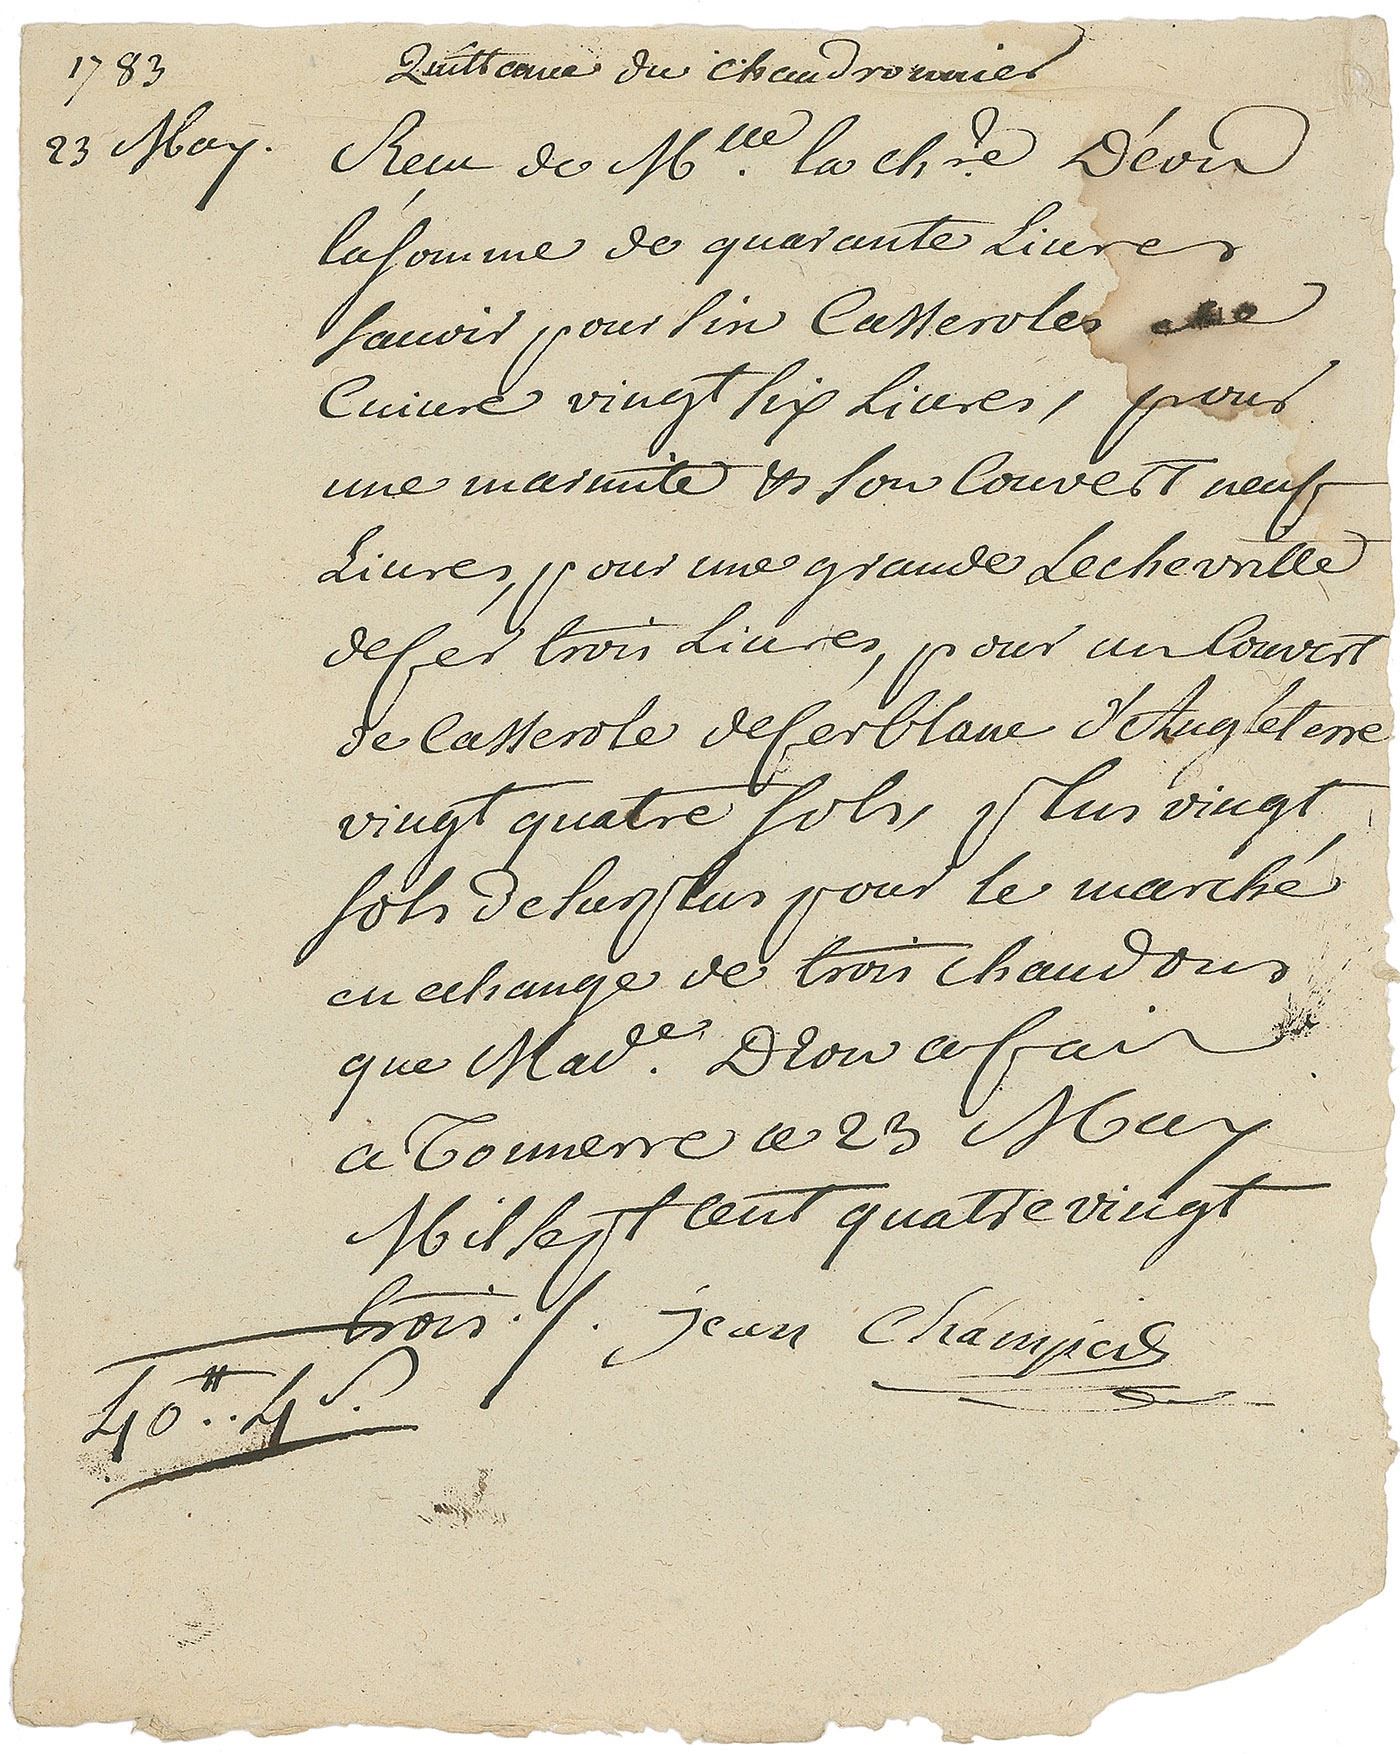 1783
Quittance du chaudronnier
23 May.
Recu de Mlle. la chre. Déon
la somme de quarante Livres
sauoir pour Six Casseroles de
Cuiure vingt six Livres, pour
une marmite & son Couvert neuf
Livres, pour une grande Lechevrille
de fer trois Livres, pour un Couvert
de Casserole de fer blanc d'Angleterre
vingt quatre sols, plus vingt
sols de surplus pour le marché
en echange de trois chaudons
que Made. Déon a fair
a Tonnerre ce 23 May
Mil sept cent quatre vingt
trois. /. jean
40tt.. 4s.